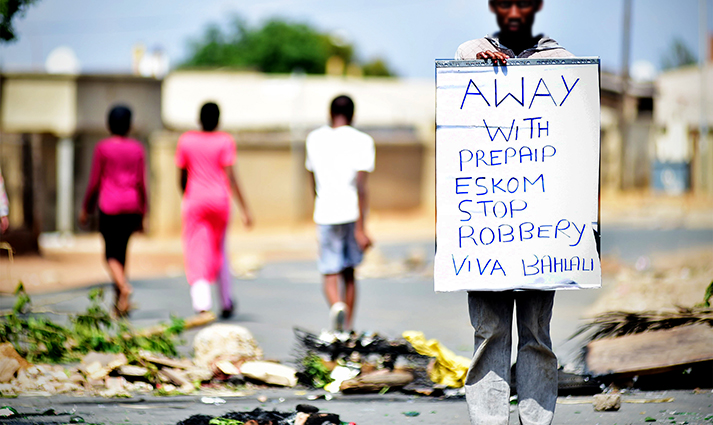 AWAY
WITH
PREPAIP
ESKOM
STOP
ROBBERY
VIVA BAHLALI